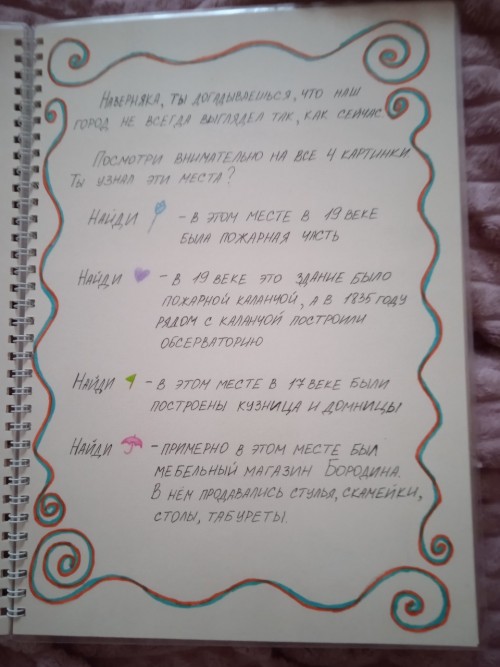 НАВЕРНЯКА, ТЫ ДОГАДЫВАЕШЬСЯ, ЧТО НАШ
ГОРОД НЕ ВСЕГДА ВЫГЛЯДЕЛ ТАК, КАК СЕЙЧАС.
ПОСМОТРИ ВНИМАТЕЛЬНО НА ВСЕ 4 КАРТИНКИ.
ТЫ УЗНАЛ ЭТИ МЕСТА?
НАЙДИ - В ЭТОМ МЕСТЕ В 19 ВЕКЕ
БЫЛА ПОЖАРНАЯ ЧАСТЬ
НАЙДИ - В 19 ВЕКЕ ЭТО ЗДАНИЕ БЫЛО
ПОЖАРНОЙ КАЛАНЧОЙ, А В 1835 ГОДУ
РЯДОМ С КАЛАНЧОЙ ПОСТРОИЛИ
ОБСЕРВАТОРИЮ
НАЙДИ - В ЭТОМ МЕСТЕ В 17 ВЕКЕ БЫЛИ
ПОСТРОЕНЫ КУЗНИЦА И ДОМНИЦЫ
НАЙДИ - ПРИМЕРНО В ЭТОМ МЕСТЕ БЫЛ
МЕБЕЛЬНЫЙ МАГАЗИН БОРОДИНА.
В НЁМ ПРОДАВАЛИСЬ СТУЛЬЯ, СКАМЕЙКИ,
СТОЛЫ, ТАБУРЕТЫ.